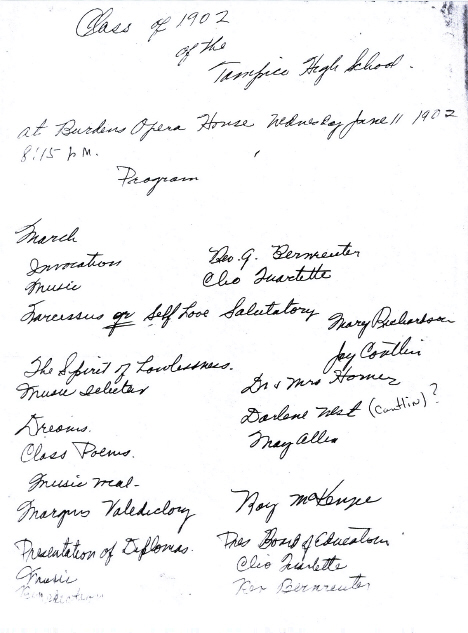 Class of 1902
of the
Tampico High School.
at Burdens Opera House Wednesday June 11 1902
8:15 P.M.
Program
March
Invocation Geo. G. Bermenter
Music Clio Quartette
Narcissus or Self Love Salutatory Mary Richardson
The Spirit of Lowlessness. Jay Conllin
Music selecter Dr & Mrs Horner
Dreams. Darlene West (Contlin)?
Class Poems. May Allen
Music
Valedictory Roy McKenzie
Presentation of Diplomas. Pres Board of Education
Music Clio Quartette
Rev Bermenter